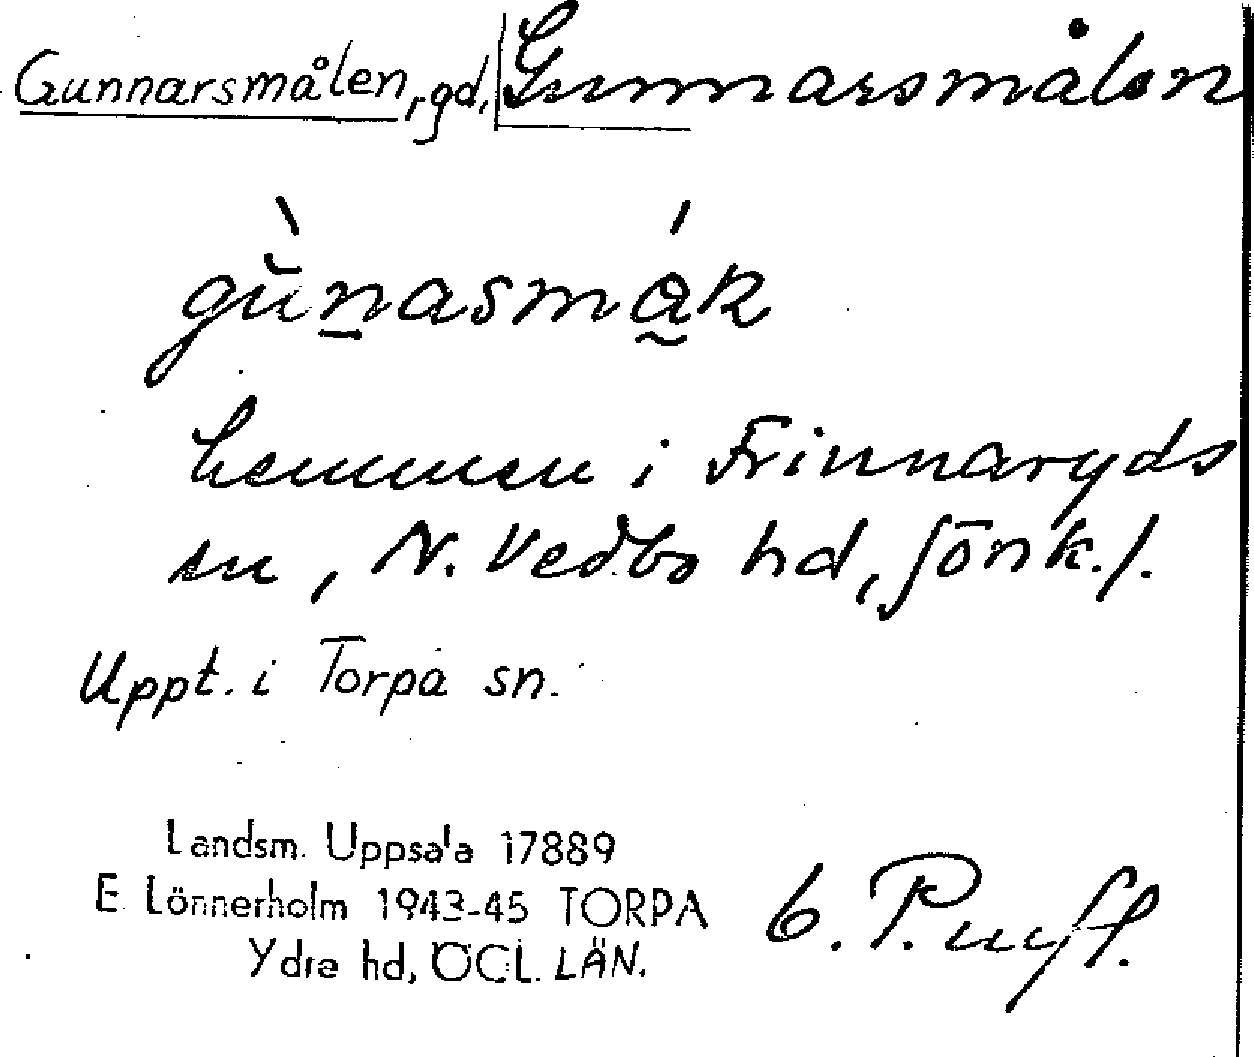 Gunnarsmålen, gd, Gunnarsmålen
hemman i Frinnaryds
sn, N. Vedbo hd, Jönk. l.
Uppt. i Torpa sn.
Landsm. Uppsala 17889
E. Lönnerholm 1943-45 TORPA
Ydre hd, ÖGL. LÄN.
6.